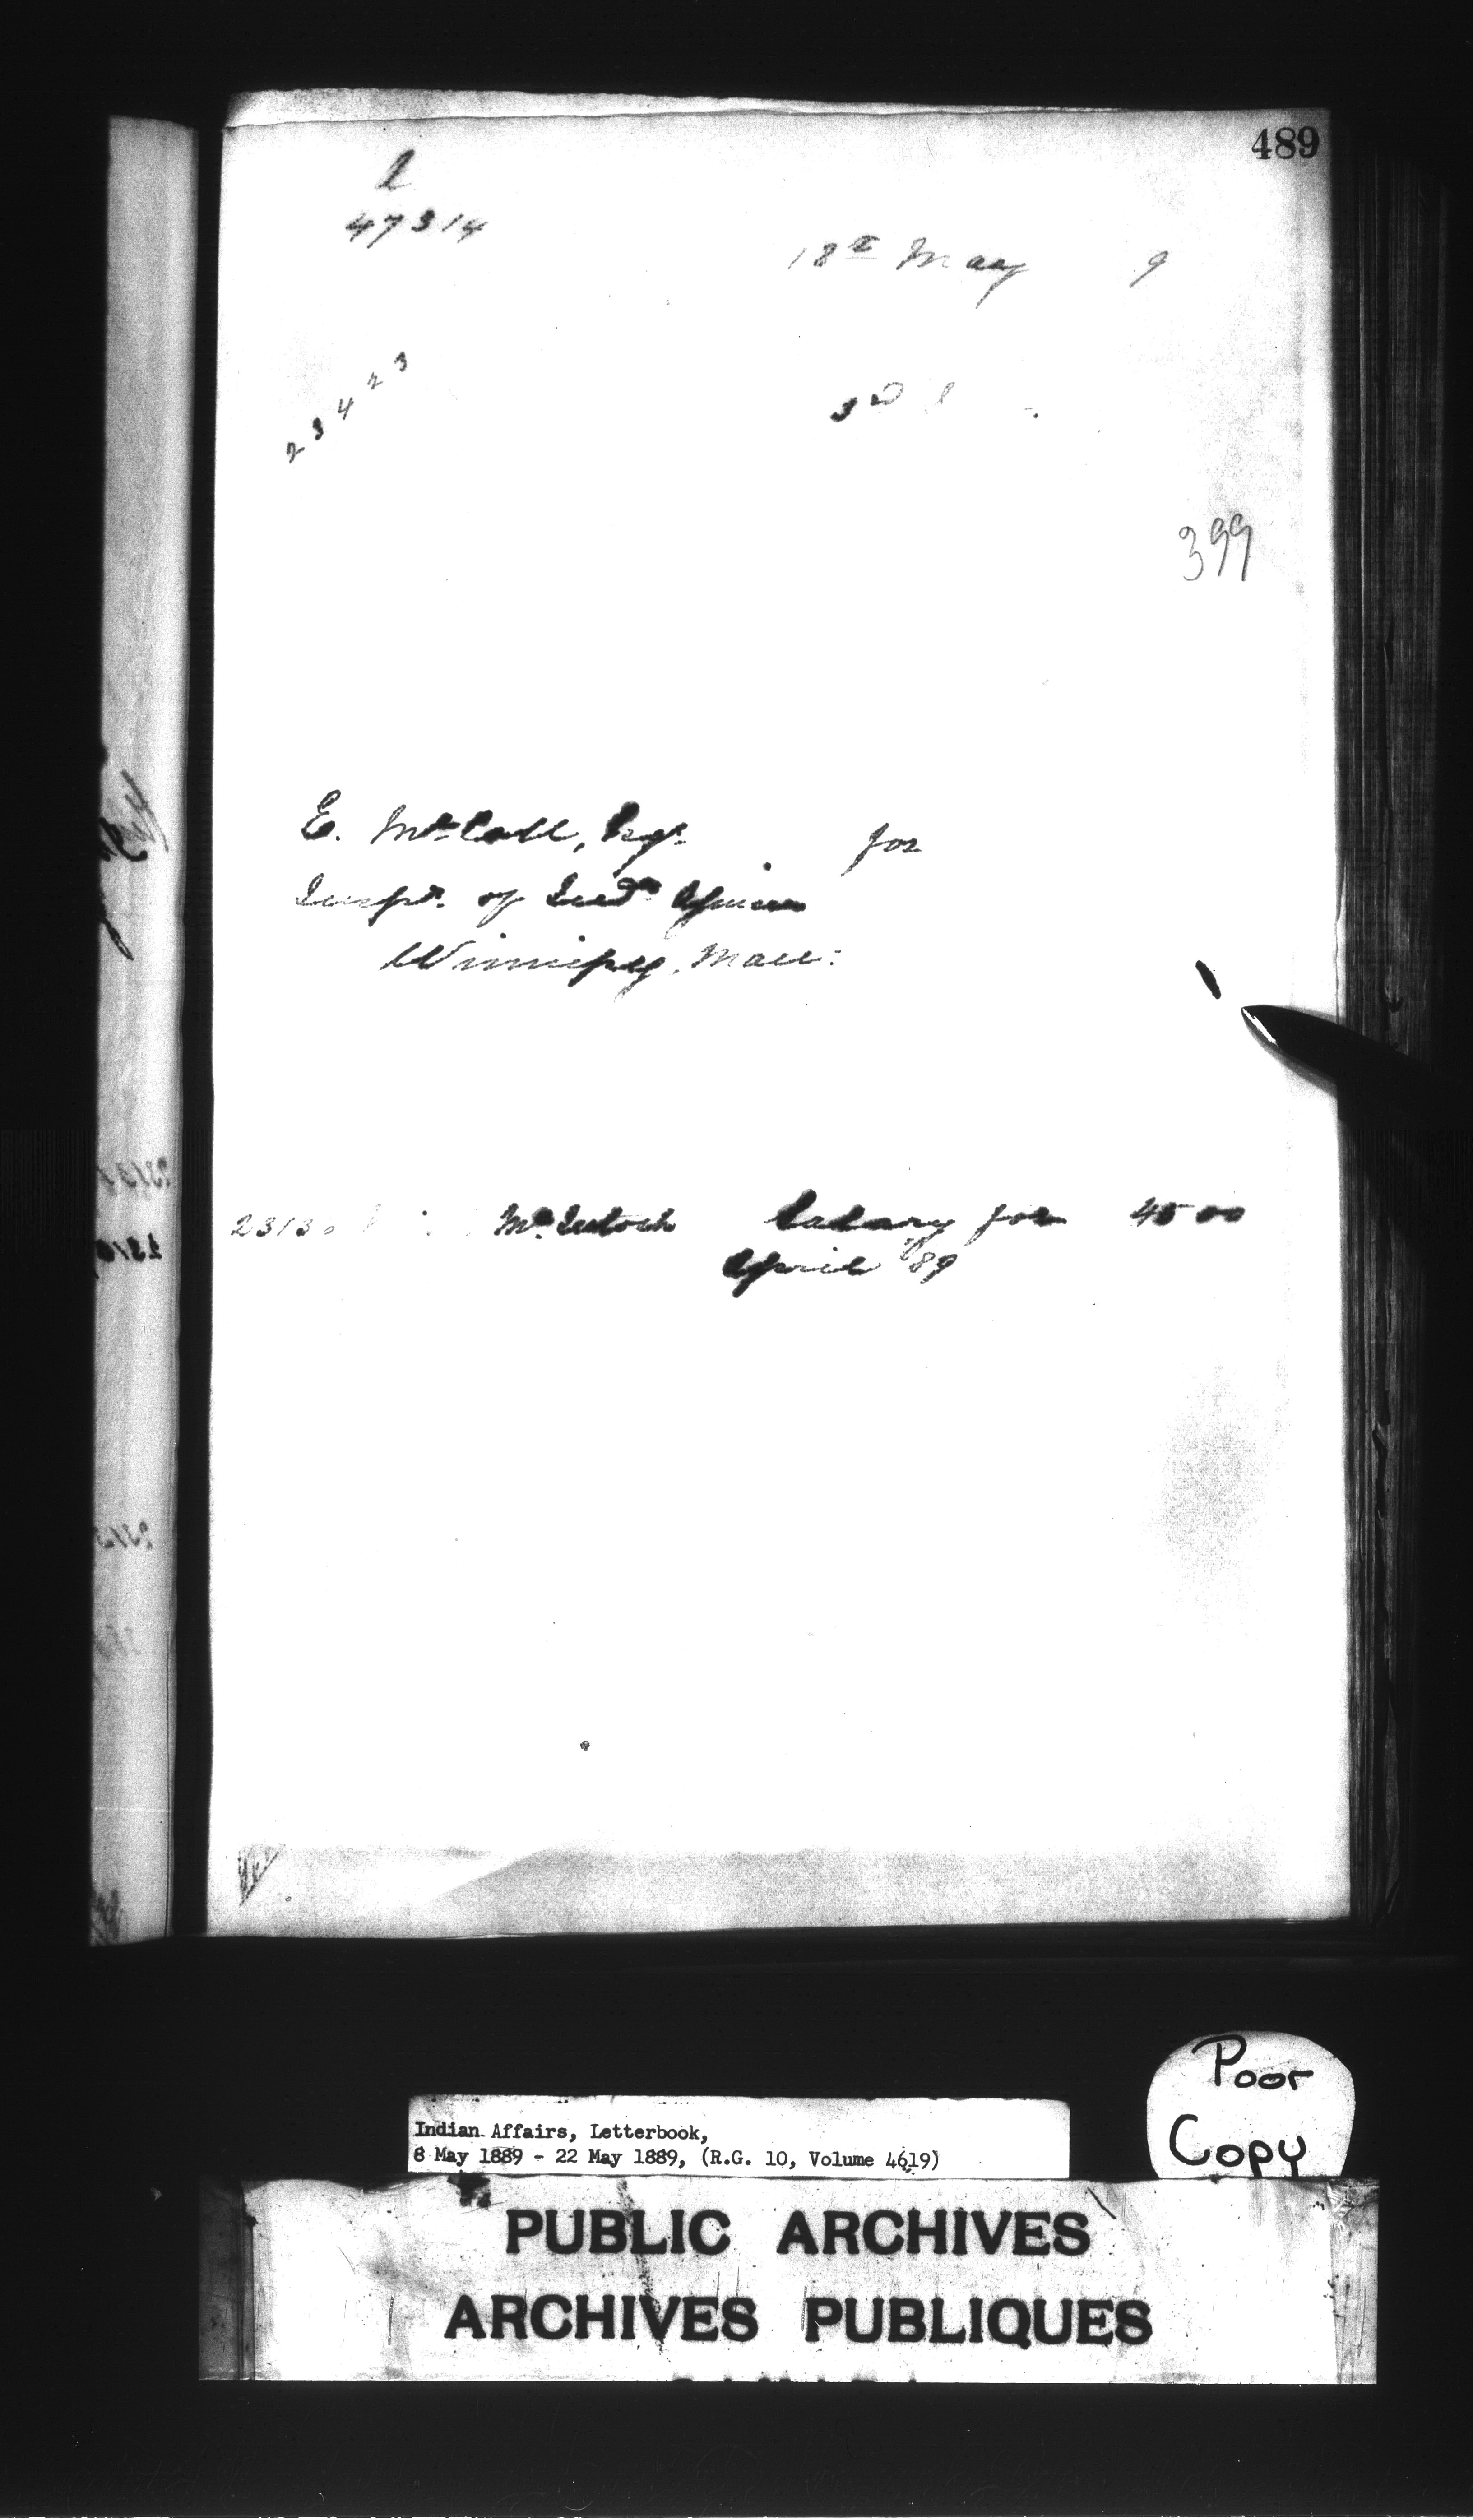 489
l
47314
18th May 9
23423
3rd
399
E. McColl, Esqr. for
Inspr. of Indn Agencies
Winnipeg, Man:
2313 McIntosh Salary for 45 00
April '89
Poor
Copy
Indian Affairs, Letterbook,
8 May 1889 - 22 May 1889, (R.G. 10, Volume 4619)
PUBLIC ARCHIVES
ARCHIVES PUBLIQUES